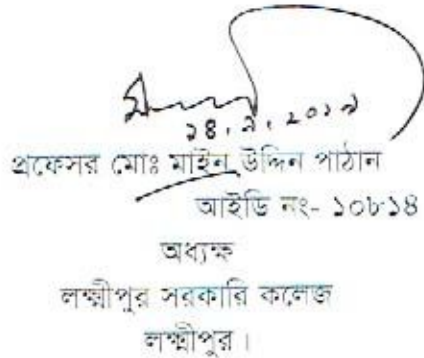 ১৪.৯.২০১৯
প্রফেসর মোঃ মাইন উদ্দিন পাঠান
আইডি নং- ১০৮১৪
অধ্যক্ষ
লক্ষ্মীপুর সরকারি কলেজ
লক্ষ্মীপুর।